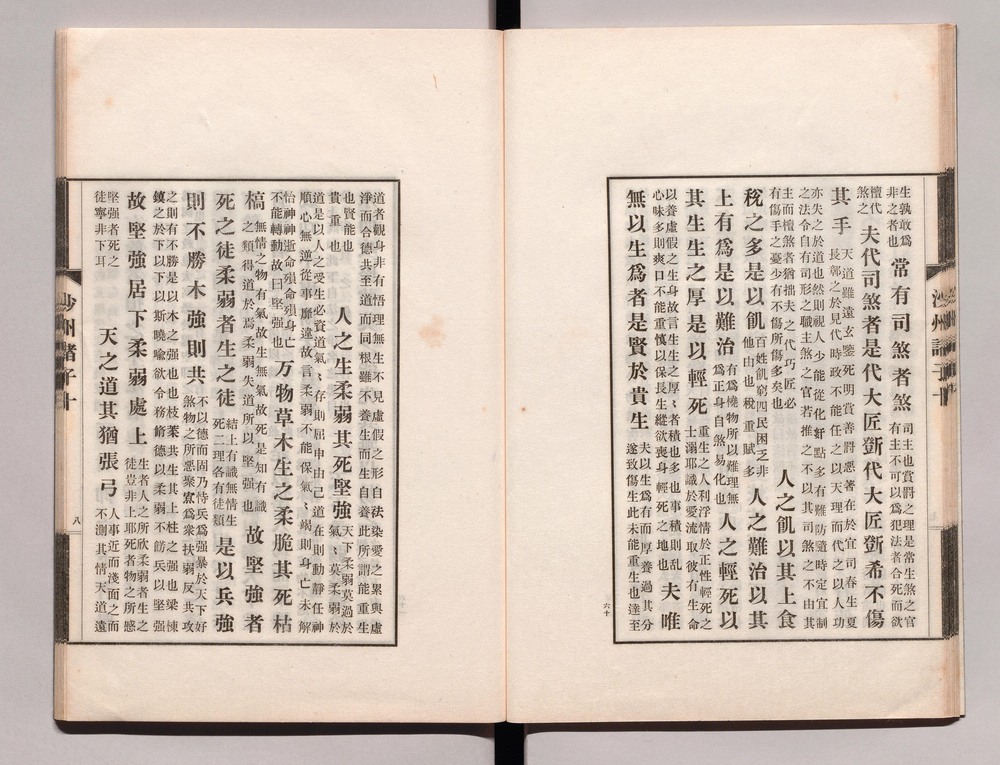 生孰敢爲
非之者也
常有司煞者煞
司主也賞爵之理是常生煞之官
有主不可以爲犯法者合死而欲
檀代
煞之
夫代司煞者是代大匠斵代大匠斵希不傷
其手
天道雖遠玄鑒死明賞善罸惡著在於宜司春生夏
長鄣之於見代時政不能任之以天理而代之以人功
亦失之於道也然則視人少能從化姧點多有難防隨時定宜制
之法令自有司形之職主煞之官若推之不以其司煞之不由其
主而檀煞者猶拙夫之代巧匠必
有傷手之憂少有不傷所傷多矣也
人之飢以其上食
稅之多是以飢
百姓飢窮四民困乏非
他由也稅重賦多
人之難治以其
上有爲是以難治
有爲憢物所以難理無
爲正身自煞易化也
人之輕死以
其生生之厚是以輕死
重生之人利浮情於正性輕死之
士溺耶識於愛流取彼有生命
以養虛假之生身故言生生之厚〻者積也多也事積則乱
心味多則爽口不能重慎以保長生縱欲喪身輕死之地也
夫唯
無以生爲者是賢於貴生
夫以生爲有而厚養過其分
遂致傷生此未能重生也達至
六十
道者觀身非有悟理無生不見虛假之形自袪染愛之累與虛
淨而合德共至道而同根雖不養生而生自養此所謂能重生
也賢能也
貴重也
人之生柔弱其死堅強
天下柔弱莫過於
氣〻莫柔弱於
道是以人之受生必資道氣〻存則屈申由己道在則動靜任神
順心無違從事靡違故言柔弱不能保氣〻竭則身亡未解
怡神神逝命殞命殞身亡
不能轉動故曰堅強也
万物草木生之柔脆其死枯
槁
無情之物有氣故生無氣故死是知有識
之類得道於焉柔弱失道所以堅強也
故堅強者
死之徒柔弱者生之徒
結上有識無情生
死二理各有徒類
是以兵強
則不勝木強則共
不以德而固乃恃兵爲強暴於天下好
煞物之所悪聚㝡爲衆扶弱反共攻
之則有不勝是以木之强也也枝葉共生其上柱之强也梁棟
鎮之於下以下以斯曉喩欲令務脩德以柔弱不飭兵以堅强
故堅强居下柔弱處上
生者人之所欣柔弱者生之
徒豈非上耶死者物之所慼
堅强者死之
徒寧非下耳
天之道其猶張弓
人事近而淺面之而
不測其情天道遠
八